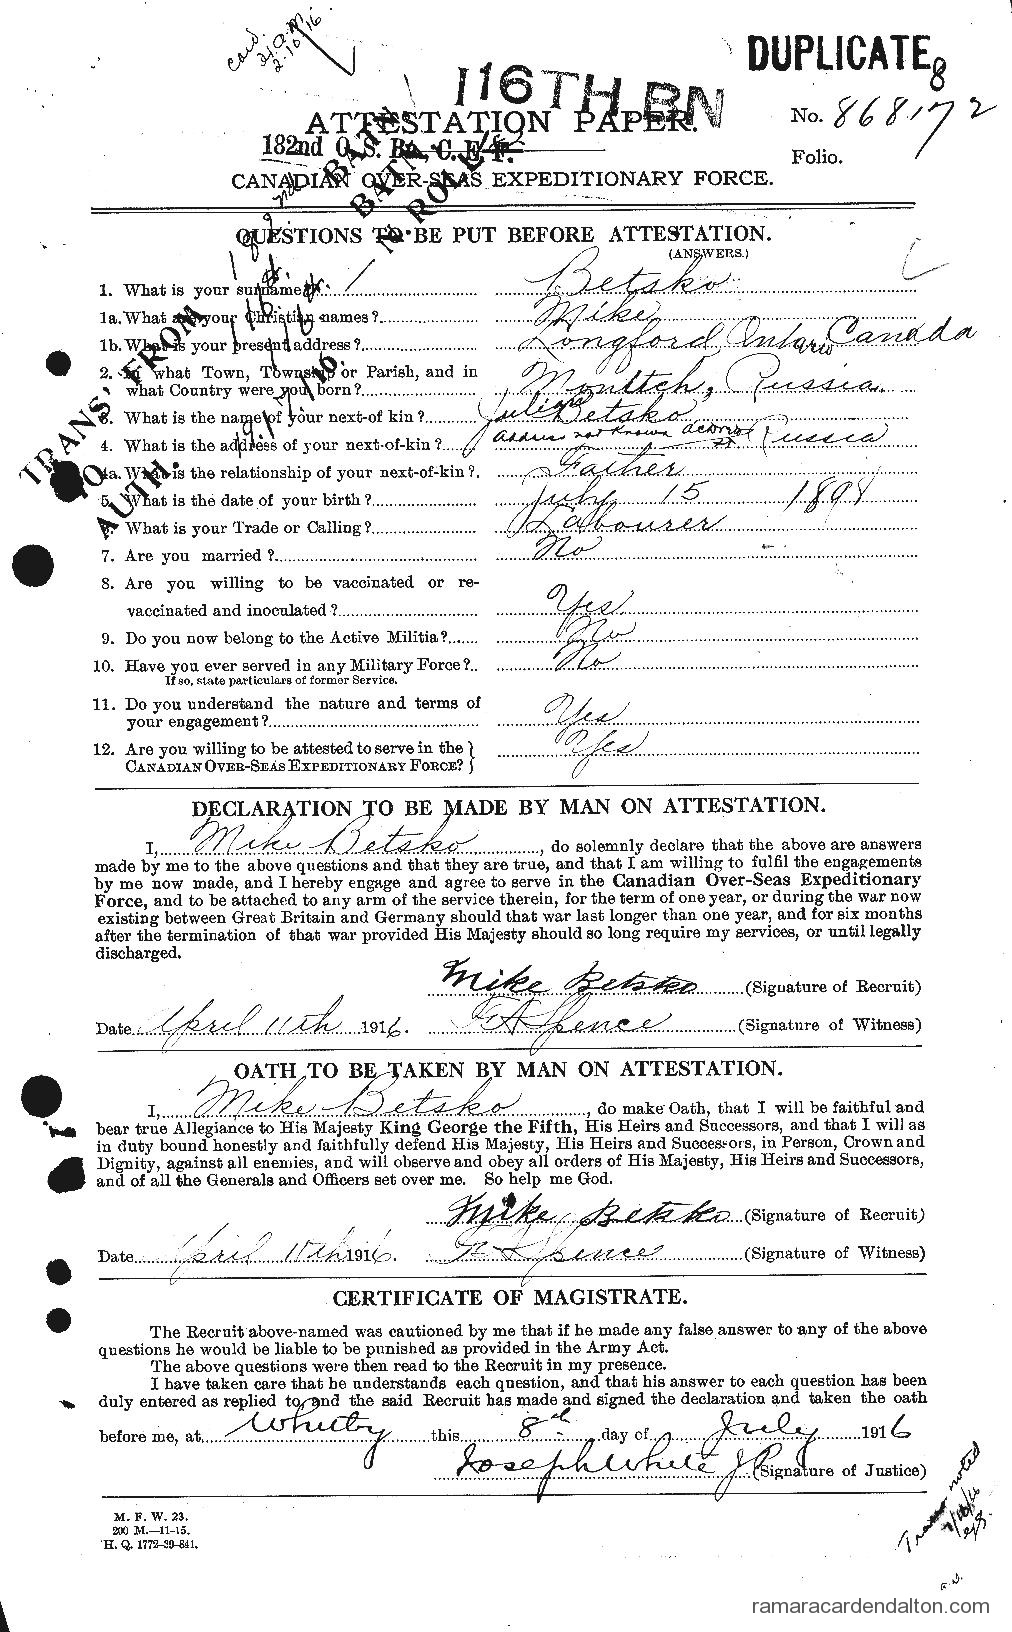 Card.
2.10.16
DUPLICATE
8
116TH BN
ATTESTATION PAPER.
No. 868172
182nd O. S. Bn. C. E. F.
Folio.
CANADIAN OVER-SEAS EXPEDITIONARY FORCE.
TRANS' FROM 182nd BATN
TO 116th BATN
AUTH.
QUESTIONS TO BE PUT BEFORE ATTESTATION.
(ANSWERS.)
1. What is your surname? Betsko
1a. What are your Christian names? Mike
1b. What is your present address? Longford Ontario Canada
2. In what Town, Township or Parish, and in
what Country were you born? Russia
3. What is the name of your next-of kin? Betsko
4. What is the address of your next-of-kin? Address not known Russia
4a. What is the relationship of your next-of-kin? Father
5. What is the date of your birth? July 15 1898
6. What is your Trade or Calling? Labourer
7. Are you married? No
8. Are you willing to be vaccinated or re-
vaccinated and inoculated? Yes
9. Do you now belong to the Active Militia? No
10. Have you ever served in any Military Force? No
If so, state particulars of former Service.
11. Do you understand the nature and terms of
your engagement? Yes
12. Are you willing to be attested to serve in the
CANADIAN OVER-SEAS EXPEDITIONARY FORCE? Yes
DECLARATION TO BE MADE BY MAN ON ATTESTATION.
I, Mike Betsko, do solemnly declare that the above are answers
made by me to the above questions and that they are true, and that I am willing to fulfil the engagements
by me now made, and I hereby engage and agree to serve in the Canadian Over-Seas Expeditionary
Force, and to be attached to any arm of the service therein, for the term of one year, or during the war now
existing between Great Britain and Germany should that war last longer than one year, and for six months
after the termination of that war provided His Majesty should so long require my services, or until legally
discharged.
Mike Betsko (Signature of Recruit)
Date April 11th 1916. F A Spence (Signature of Witness)
OATH TO BE TAKEN BY MAN ON ATTESTATION.
I, Mike Betsko, do make Oath, that I will be faithful and
bear true Allegiance to His Majesty King George the Fifth, His Heirs and Successors, and that I will as
in duty bound honestly and faithfully defend His Majesty, His Heirs and Successors, in Person, Crown and
Dignity, against all enemies, and will observe and obey all orders of His Majesty, His Heirs and Successors,
and of all the Generals and Officers set over me. So help me God.
Mike Betsko (Signature of Recruit)
Date April 11th 1916. Spence (Signature of Witness)
CERTIFICATE OF MAGISTRATE.
The Recruit above-named was cautioned by me that if he made any false answer to any of the above
questions he would be liable to be punished as provided in the Army Act.
The above questions were then read to the Recruit in my presence.
I have taken care that he understands each question, and that his answer to each question has been
duly entered as replied to, and the said Recruit has made and signed the declaration and taken the oath
before me, at Whitby this 8th day of July 1916
Joseph White J.P. (Signature of Justice)
M. F. W. 23.
200 M.—11-15.
H. Q. 1772-39-841.
noted
ramaracardendalton.com